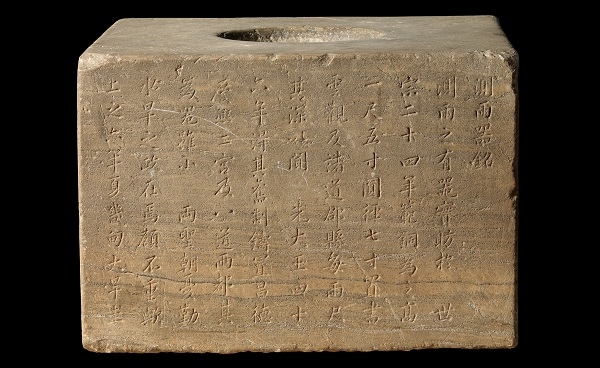 測雨器銘
測雨之有器實昉於 世
宗二十四年範銅爲之高
一尺五寸圓徑七寸置書
雲觀及諸道郡縣每雨尺
其深以聞 先大王四十
六年得其舊制鑄置昌德
慶熙二宮及八道兩都其
爲器雖小 兩聖朝憂勤
水旱之政在焉顧不重歟
上之六年夏畿甸大旱圭